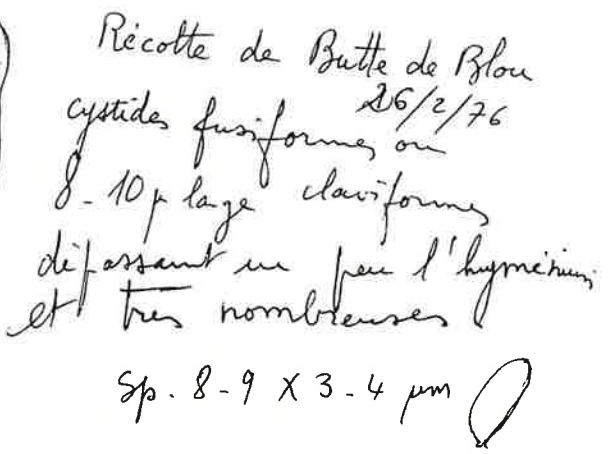 Récolte de Butte de Blou
26/2/76
cystides fusiformes ou
8-10 µ large claviformes
dépassant un peu l'hyménium
et très nombreuses
Sp. 8-9 X 3-4 µm